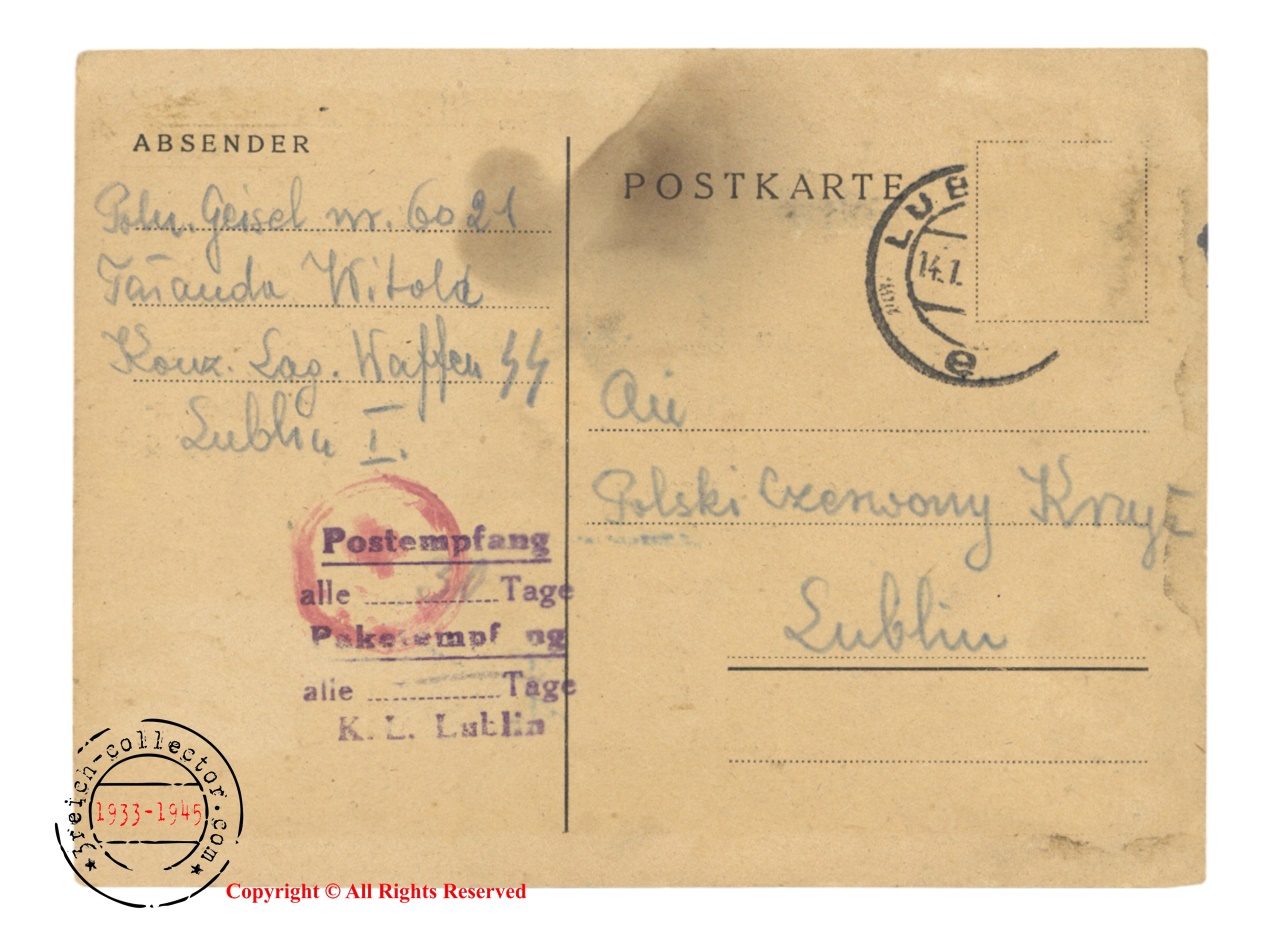 ABSENDER
Poln. Geisel nr. 6021
Witold
Konz. Lag. Waffen SS
Lublin I.
Postempfang
alle 30 Tage
Paketempf ng
alle Tage
K. L. Lublin
POSTKARTE
LUB
14.7.
e
An
Polski Czerwony Krzyż
Lublin
3reich-collector.com
1933-1945
Copyright © All Rights Reserved